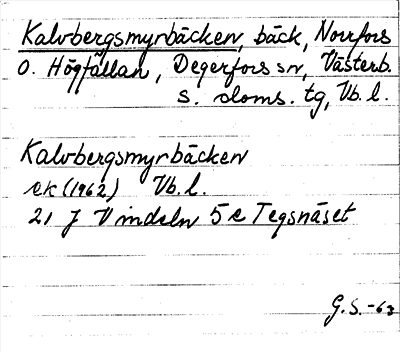 Kalvbergsmyrbäcken, bäck, Norrfors
o. Högfällan, Degerfors sn, Västerb.
s. doms. tg, Vb. l.
Kalvbergsmyrbäcken
ek (1962) Vb. l.
21 J Vindeln 5 e Tegsnäset
G. S. -63